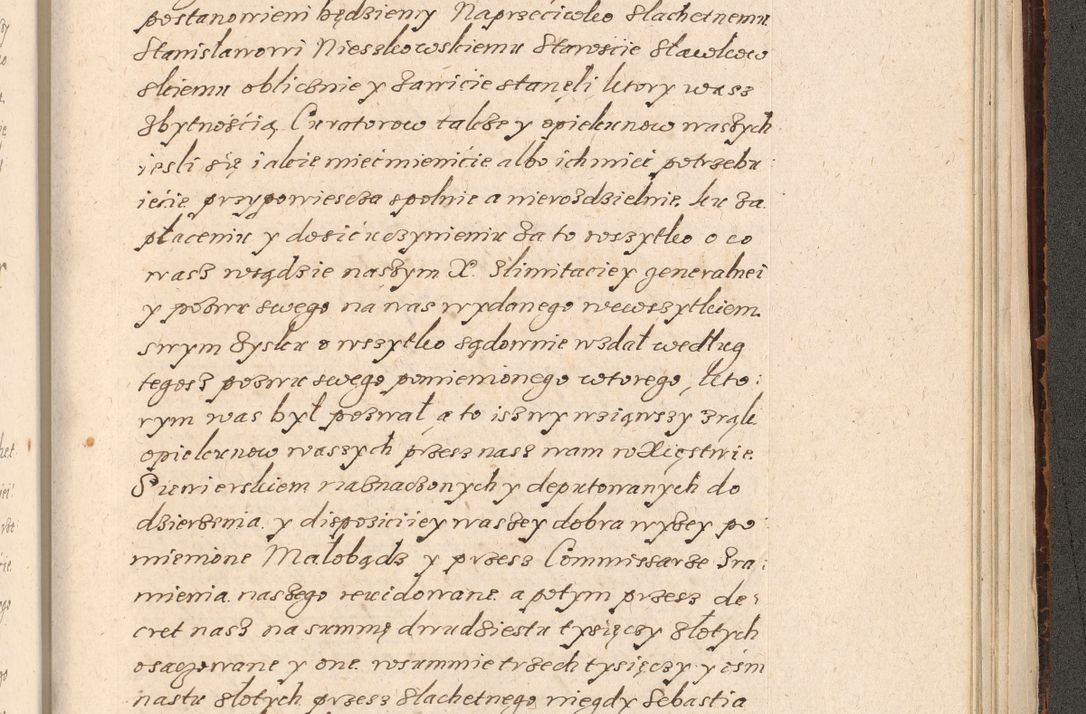 postanowieni będziemy Naprzeciwko Slachetnemu
Stanisławowi Nieszkowskiemu Staroscie Sławkow
skiemu oblicznie y zawicie stanęli ktory wasz
zbytnością Curatorow takze y opiekunow waszych
iesli się iakie mieć mienicie albo ich mieć potrzebu:
iećie przypowieszcza spolnie a nierozdzielnie ku za
płaceniu y dosić uczynieniu za to wszytko o co
wasz wsądzie naszym X. Zlimitaciey generalnei
y pozwu swego na was wydanego wewszytkiem
swym zysku o wszytko sądownie wzdał według
tegosz pozwu swego pomienionego wtorego, kto:
rym was był pozwał, a to iszwy wziąwszy zrąk
opiekunow waszych przesz nasz wam w Xięstwie
Siewierskiem naznaczonych y deputowanych do
dzierzenia y disposiciiey waszey dobra wyzey po
mienione Małobądz y przesz Commissarze Zra:
mienia naszego rewidowane a potym przesz de:
cret nasz na summę dwudziestu tysięczy złotych
osaczowane y one wsummie trzech tysięczy y ośm
nastu złotych przesz Slachetnego niegdy Sebastia